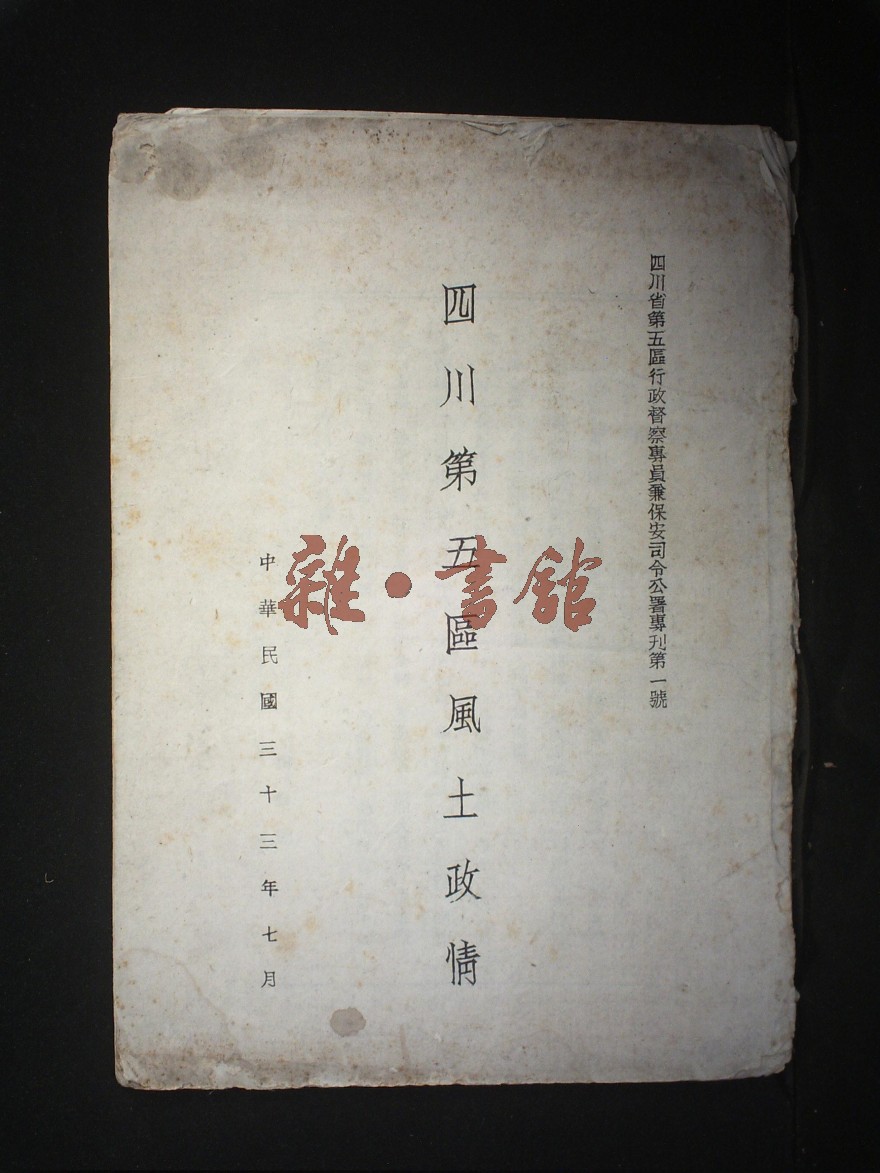 四川省第五區行政督察專員兼保安司令公署專刊第一號
四川第五區風土政情
中華民國三十三年七月
雜·書館